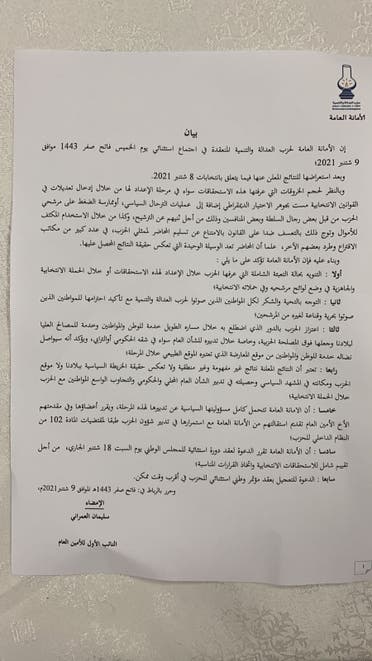 الأمانة العامة
بيان
إن الأمانة العامة لحزب العدالة والتنمية المنعقدة في اجتماع استثنائي يوم الخميس فاتح صفر 1443 موافق
9 شتنبر 2021؛
وبعد استعراضها للنتائج المعلن عنها فيما يتعلق بانتخابات 8 شتنبر 2021.
وبالنظر لحجم الخروقات التي عرفتها هذه الاستحقاقات سواء في مرحلة الإعداد لها من خلال إدخال تعديلات في
القوانين الانتخابية مست بجوهر الاختيار الديمقراطي إضافة إلى عمليات الترحال السياسي، أوممارسة الضغط على مرشحي
الحزب من قبل بعض رجال السلطة وبعض المنافسين وذلك من أجل ثنيهم عن الترشيح، وكذا من خلال الاستخدام المكثف
للأموال وتوج ذلك بالتعسف ضدا على القانون بالامتناع عن تسليم المحاضر لممثلي الحزب، في عدد كبير من مكاتب
الاقتراع وطرد بعضهم الآخر، علما أن المحاضر تعد الوسيلة الوحيدة التي تعكس حقيقة النتائج المحصل عليها.
وبناء عليه فإن الأمانة العامة تؤكد على ما يلي:
أولا : التنويه بالحالة التعبئة الشاملة التي عرفها الحزب خلال الإعداد لهذه الاستحقاقات أو خلال الحملة الانتخابية
والجاهزية في وضع لوائح مرشحيه وفي حملاته الانتخابية؛
ثانيا : التوجه بالتحية والشكر لكل المواطنين الذين صوتوا لحزب العدالة والتنمية مع تأكيد احترامها للمواطنين الذين
صوتوا بحرية وقناعة لغيره من المرشحين؛
ثالثا : اعتزاز الحزب بالدور الذي اضطلع به خلال مساره الطويل خدمة للوطن والمواطنين وخدمة للمصالح العليا
لبلادنا وجعلها فوق المصلحة الحزبية، وخاصة خلال تدبيره للشأن العام سواء في شقه الحكومي أوالترابي، ويؤكد أنه سيواصل
نضاله خدمة للوطن والمواطنين من موقع المعارضة الذي تعتبره الموقع الطبيعي خلال المرحلة؛
رابعا : تعتبر أن النتائج المعلنة نتائج غير مفهومة وغير منطقية ولا تعكس حقيقة الخريطة السياسية ببلادنا ولا موقع
الحزب ومكانته في المشهد السياسي وحصيلته في تدبير الشأن العام المحلي والحكومي والتجاوب الواسع المواطنين مع الحزب
خلال الحملة الانتخابية؛
خامسا : أن الأمانة العامة تتحمل كامل مسؤوليتها السياسية عن تدبيرها لهذه المرحلة، ويقرر أعضاؤها وفي مقدمتهم
الأخ الأمين العام تقديم استقالتهم من الأمانة العامة مع استمرارها في تدبير شؤون الحزب طبقا لمقتضيات المادة 102 من
النظام الداخلي للحزب؛
سادسا : أن الأمانة العامة تقرر الدعوة لعقد دورة استثنائية للمجلس الوطني يوم السبت 18 شتنبر الجاري، من أجل
تقييم شامل للاستحقاقات الانتخابية واتخاذ القرارات المناسبة؛
سابعا : الدعوة للتعجيل بعقد مؤتمر وطني استثنائي للحزب في أقرب وقت ممكن.
وحرر بالرباط في: فاتح صفر 1443هـ الموافق 9 شتنبر 2021م،
الإمضاء
سليمان العمراني
النائب الأول للأمين العام
1